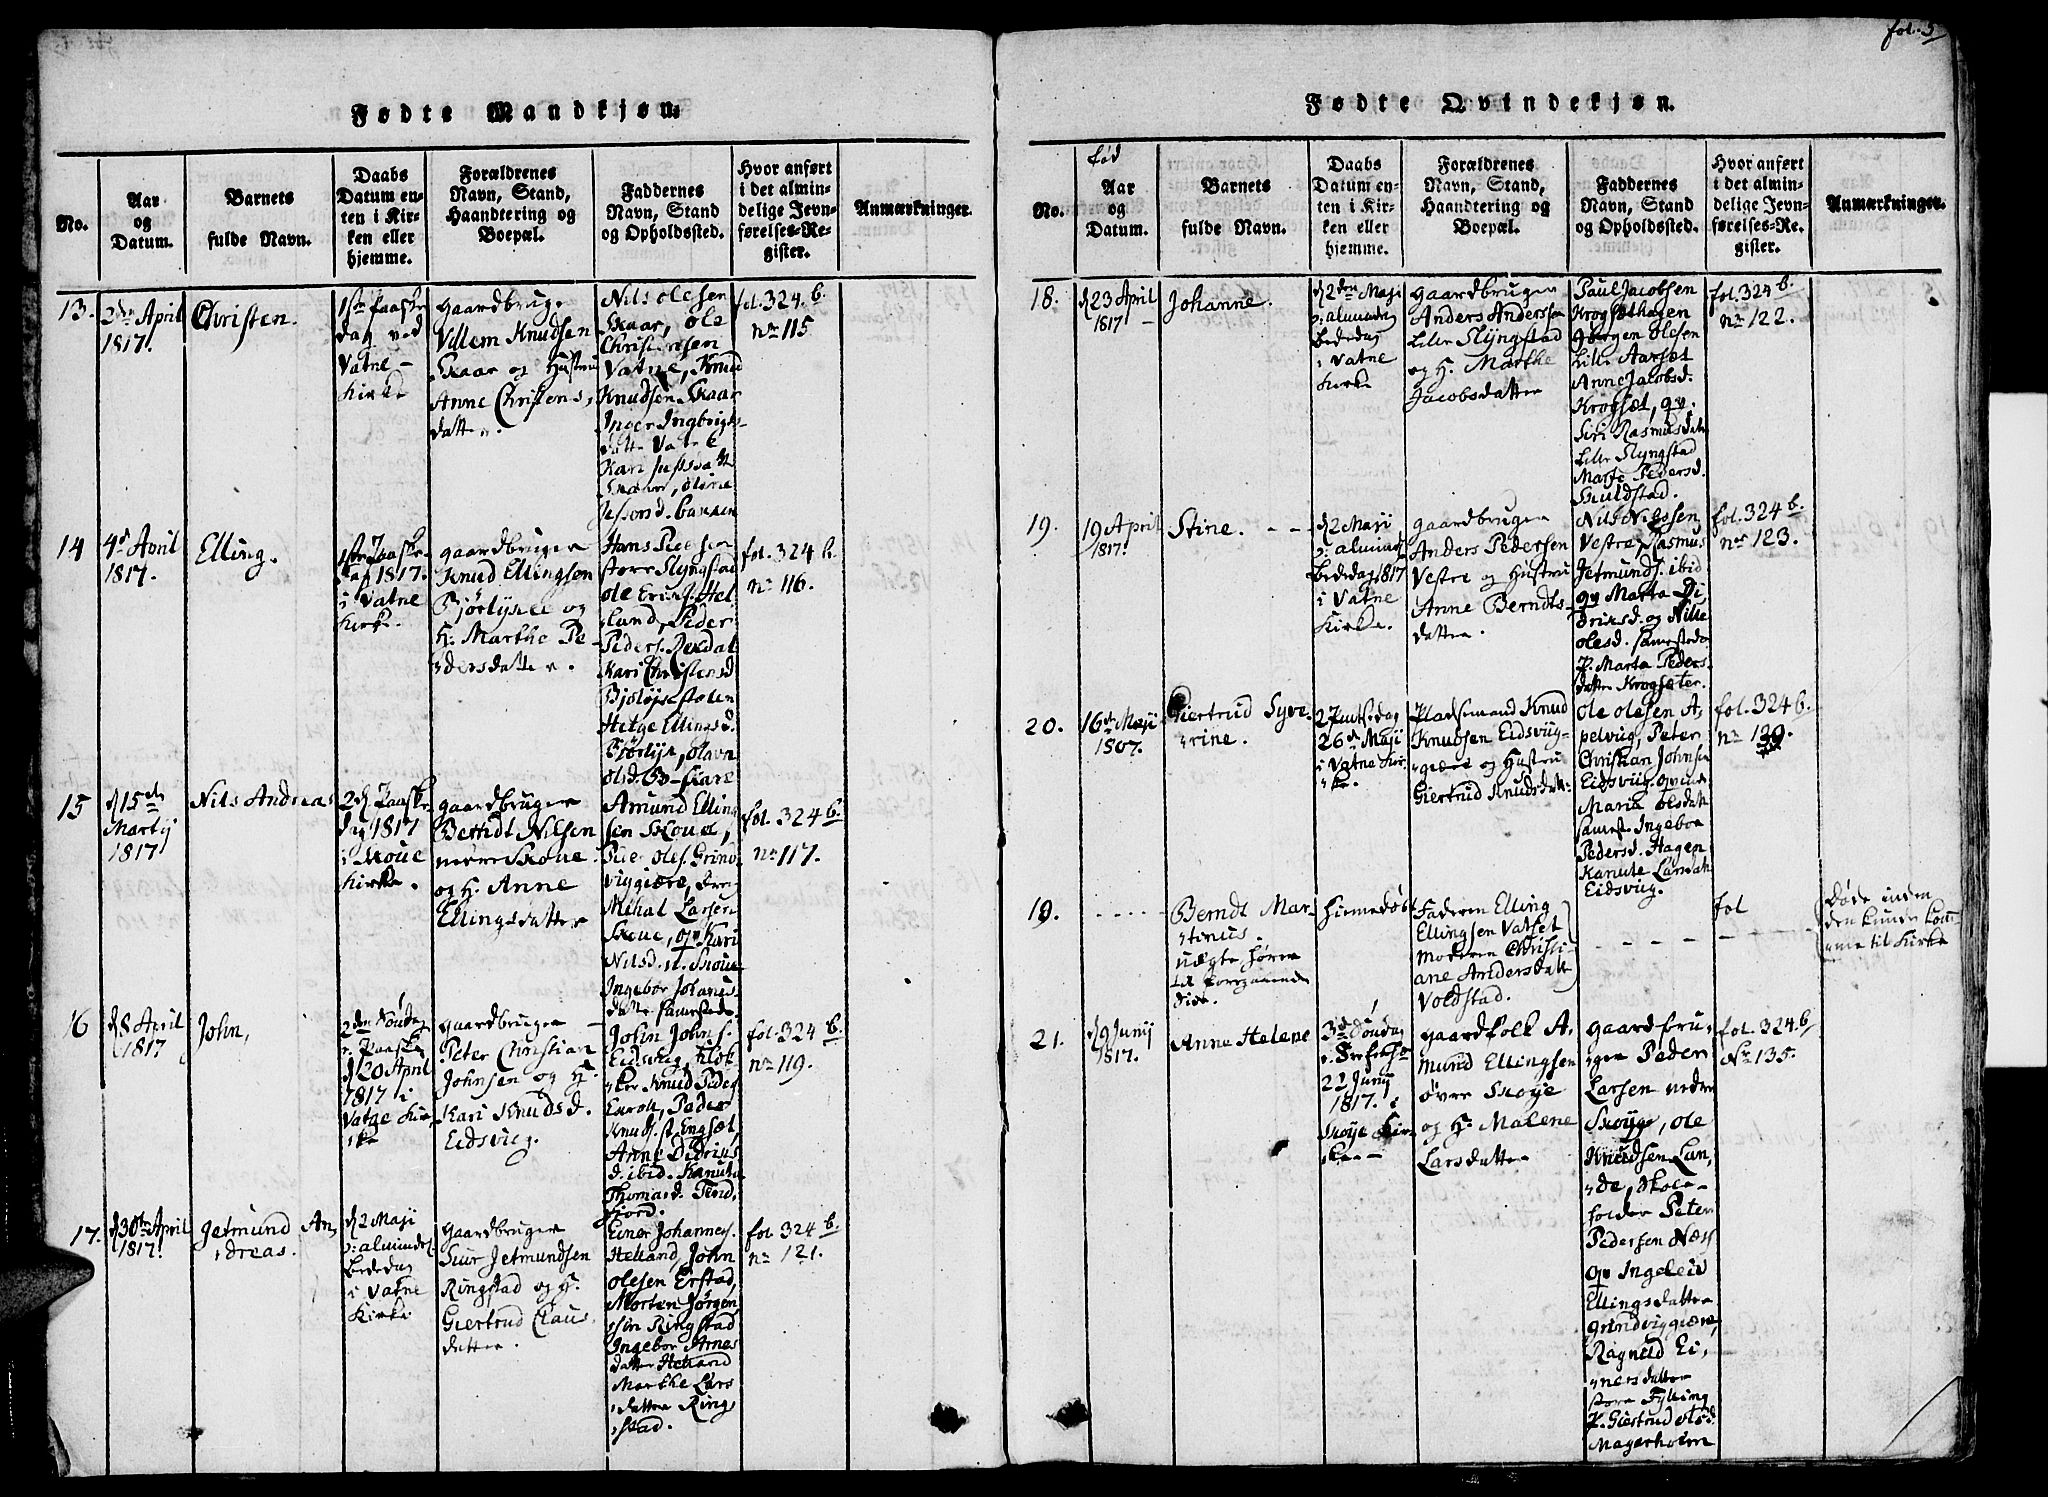 fol. 3
Fødte Mandkjøn.
No.
Aar
og
Datum.
Barnets
fulde Navn.
Daabs
Datum en-
ten i Kir-
ken eller
hjemme.
Forældrenes
Navn, Stand,
Haandtering og
Boepæl.
Faddernes
Navn, Stand
og Opholdssted.
Hvor anført
i det almin-
delige Jevn-
førelses-Re-
gister.
Anmærkninger.
13.
2den April
1817.
Christen.
1ste Paaske
dag ved
Vatne
Kirke
gaardbruger
Villem Knudsen
Skaar og Hustru
Anne Christens,
datter.
Nils Olesen
Skaar, Ole
Christensen
Vatne, Knud
Knudsen Skaar
Inger Ingbrigts-
datter Vatne
Kari
Skaar, Oline
fol. 324. b.
No 115
14
4de April
1817.
Elling.
1ste Paaske
dag 1817.
i Vatne
Kirke.
gaardbruger
Knud Ellingsen
og
H: Marthe Pe-
dersdatter.
Hans
Store Slyngstad
Ole Eriks. Hel-
land, Peder
Peders. Rexdal
Kari Christensd
Helge Ellingsd.
fol. 324 b.
No 116.
15
d 15de
Martij
1817
Nils Andreas
2d Paaske
dag 1817
i Skoue
Kirke.
gaardbruger
Nilsen
nedre Skoue
og H. Anne
Ellingsdatter
Amund Elling-
sen Skoue,
Oles. Grind-
viggiære,
Mikal Larsen
Skoue, qv Kari
Nilsd. n. Skoue
Ingebor Johanes-
datter sammested.
fol. 324 b.
No 117.
16
d 8 April
1817
John,
2den Søndag
e. Paaske
d 20 April
1817 i
Vatne Kir-
ke
gaardbruger
Peter Christian
Johnsen og H.
Kari Knudsd.
Eidsvig.
John Johns.
Eidsvig, Klok-
ker Knud Peders
Peder
Knuds. st. Engset,
Anne Didriks
d. ibid. Kanute
Thomasd. Tend-
fiord.
fol. 324 b.
No 119.
17.
d 30te April
1817.
Jetmund An-
dreas.
d 2 Maji
p: almindel.
Bededag
i Vatne
Kirke
gaardbruger
Siur Jetmundsen
Ringstad og H.
Giertrud Claus-
datter.
Einer Johannes.
Helland, John
Olesen Erstad,
Morten Jørgen-
sen Ringstad
Ingebor Arnes
datter Helland
Marthe Lars
datter Ring-
stad.
fol. 324 b.
No 121.
Fødte Qvindekjøn.
No.
fød
Aar
og
Datum.
Barnets
fulde Navn.
Daabs
Datum en-
ten i Kir-
ken eller
hjemme.
Forældrenes
Navn, Stand,
Haandtering og
Boepæl.
Faddernes
Navn, Stand
og Opholdssted.
Hvor anført
i det almin-
delige Jevn-
førelses-Re-
gister.
Anmærkninger.
18.
d 23 April
1817
Johanne.
d 2den Maji
p: almindel
Bededag
i Vatne
Kirke
gaardbruger
Anders Andersen
Lille Slyngstad
og H. Marthe
Jacobsdatter
Paul Jacobsen
Krogsethagen
Jørgen Olesen
Lille Aarset
Anne Jacobsd.
Krogsæt, qv.
Siri Rasmusdatter
Lille Slyngstad
Marte Pedersd.
Skuldstad.
fol. 324 b.
No 122.
19.
19 April
1817.
Stine.
d 2 Maji
p: almindel
Bededag 1817
i Vatne
Kirke.
gaardbruger
Anders Pedersen
Vestre og Hustru
Anne Berndts-
datter.
Nils Nilssen
Vestre, Rasmus
Jetmunds. ibid
qv Marta Di-
driksd. og Nille
Olesd. sammesteds
P. Marta Peders-
datter Krogseter.
fol. 324 b.
No 123.
20.
16de Maji
1807.
Giertrud Syve-
rine.
2 Pintsedag
26de Maji
i Vatne Kir-
ke.
Pladsemand Knud
Knudsen Eidsviig-
giære og Hustru
Giertrud Knudsdatt.
Ole Olesen A-
pelvug, Peter
Christian Johnsen
Eidsviig, qvinde
Maria Olsdatt
sammest. Ingebor
Pedersd. Hagen
Kanute Larsdatt
Eidsvug.
fol. 324 b.
No 130.
19.
Berndt Mar-
tinus.
uægte hører
til foregaaende
Side.
Hiemedøbt
Faderen Elling
Ellingsen Vatset
moderen Christi-
ane Andersdatt
Voldstad.
fol
Døde inden
den kunde kom-
me til Kirke
21.
d 9 Junij
1817.
Anne Helene
3de Søndag
e. Trefoldh
22 Junij
1817. i
Skoye Kir-
ke
gaardfolk A-
mund Ellingsen
øvre Skoye
og H: Malene
Larsdatter
gaardbru-
ger Peder
Larsen nedre
Skoyge, Ole
Knudsen Lun-
de, Skole-
holder Peter
Pedersen Næss
qv Ingeleiv
Ellingsdatter
Grindviggiære,
Ragnild Ei-
nersdatter
store Fylling
P. Giertrud Olsd.
Magerholm
fol. 324 b
No 135.